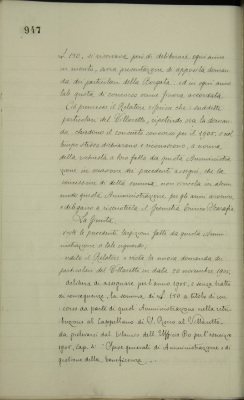 947
£ 150, si riservava però di deliberare ogni anno
in merito, dietro presentazione di apposita domanda
dei particolari della Borgata, ed in ogni anno
tale quota di concorso venne finora accordata.
Ciò premesso il Relatore riferisce che i suddetti
particolari del Villaretto, ripetendo ora la domanda,
chiedono il concorso consueto per il 1905, e nel
tempo stesso dichiarano e riconoscono, a norma
della richiesta a loro fatta da questa Amministrazione
in occasione dei precedenti assegni, che la
concessione di detta somma, non vincola in alcun
modo questa Amministrazione per gli anni avvenire
La Giunta
viste le precedenti erogazioni fatte da questa Amministrazione
a tale riguardo;
udito il Relatore e vista la nuova domanda dei
particolari del Villaretto in data 20 novembre 1904;
delibera di assegnare per l'anno 1905, e senza tratto
di conseguenza, la somma di £ 150 a titolo di concorso
da parte di quest' Amministrazione nella retribuzione
al Cappellano di S. Rocco al Villaretto,
da prelevarsi dal bilancio dell' Ufficio Pio per l'esercizio
1905, cap. 4° "Spese generali di Amministrazione e di
gestione della beneficenza"